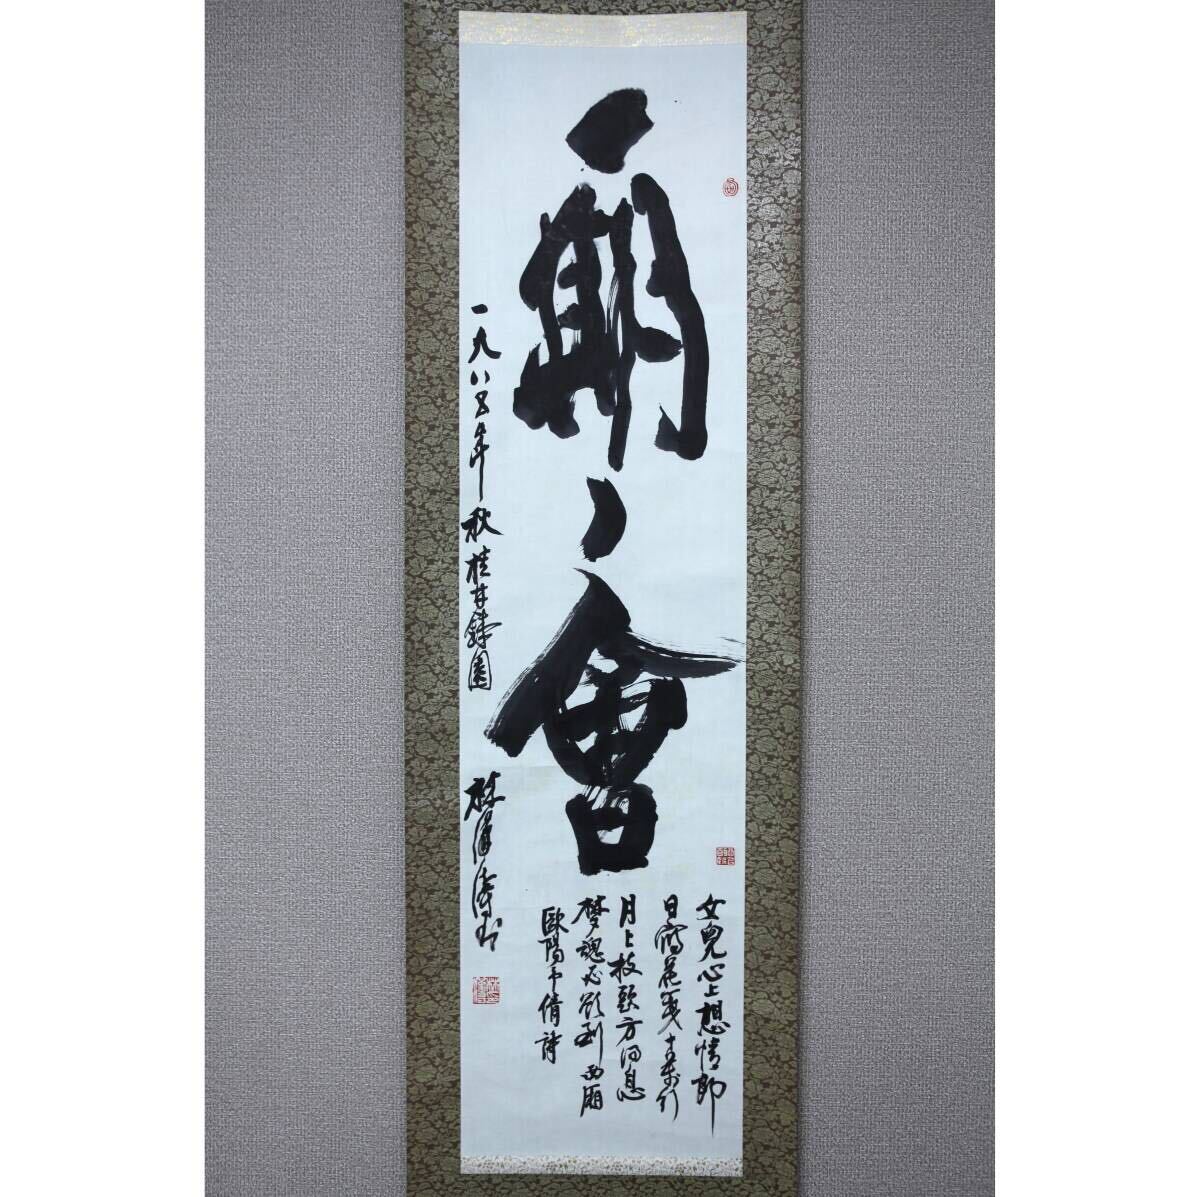 廟會
女兒心上想情郎
日寫花箋十萬行
月上枝頭方得息
梦魂欲到西廂
歐陽予倩詩
一九八五年秋桂井園